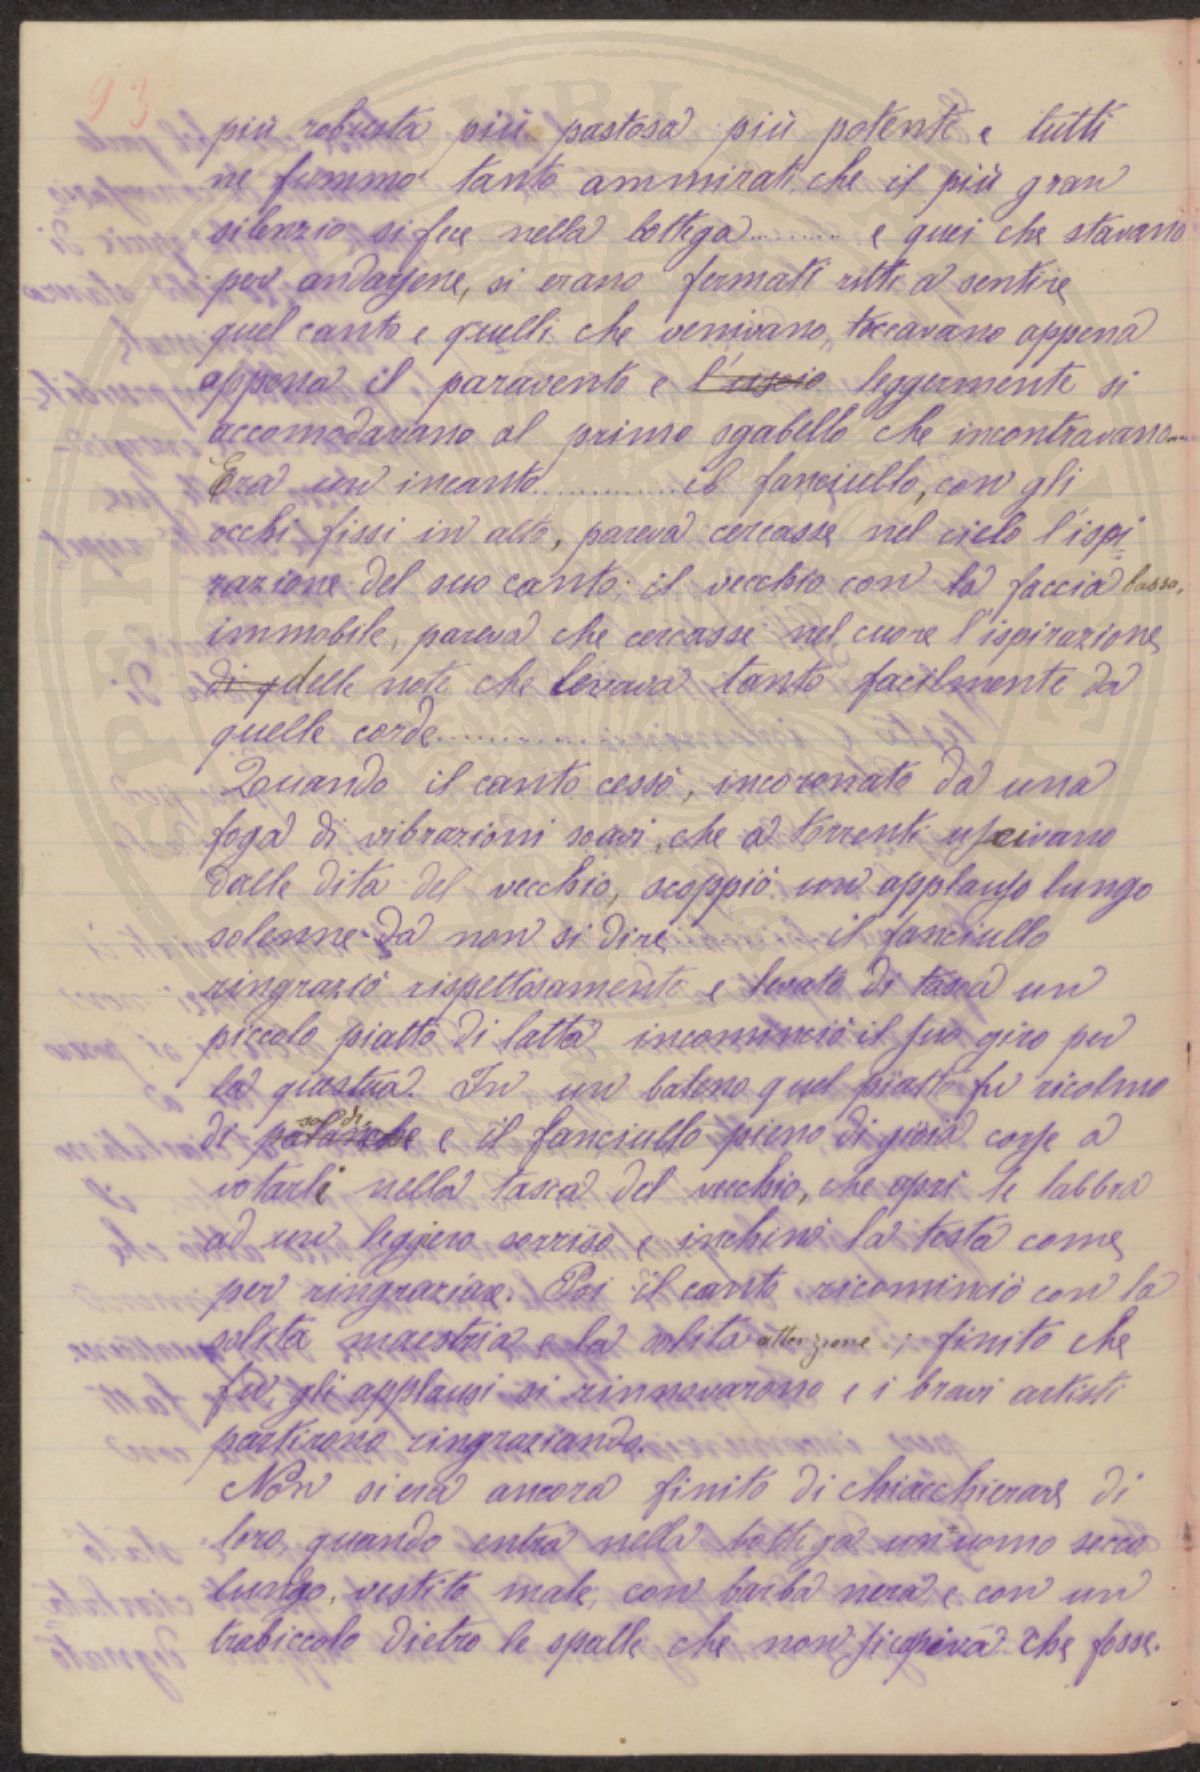 93
più robusta più pastosa più potente e tutti
ne fummo tanto ammirati che il più gran
silenzio si fece nella bottega......... e quei che stavano
per andarsene, si erano fermati ritti a sentire
quel canto e quelli che venivano, toccavano appena
appena il paravento e l'uscio leggermente si
accomodavano al primo sgabello che incontravano....
Era un incanto.............. il fanciullo, con gli
occhi fissi in alto, pareva cercasse nel cielo l'ispi
razione del suo canto; il vecchio con la faccia bassa,
immobile, pareva che cercasse nel cuore l'ispirazione
di quelle note che levava tanto facilmente da
quelle corde...................
Quando il canto cessò, incoronato da una
foga di vibrazioni soavi, che a torrenti uscivano
dalle dita del vecchio, scoppiò un applauso lungo
solenne da non si dire.............. il fanciullo
ringraziò rispettosamente e levato di tasca un
piccolo piatto di latta incominciò il suo giro per
la questua. In un baleno quel piatto fu ricolmo
soldi
di palanche e il fanciullo pieno di gioia corse a
votarli nella tasca del vecchio, che aprì le labbra
ad un leggiero sorriso e inchinò la testa come
per ringraziare. Poi il canto ricominciò con la
solita maestria e la solita attenzione; finito che
fu, gli applausi si rinnovarono e i bravi artisti
partirono ringraziando.
Non si era ancora finito di chiacchierare di
loro, quando entra nella bottega un uomo secco
lungo, vestito male, con barba nera e con un
trabiccolo dietro le spalle che non si capiva che fosse.